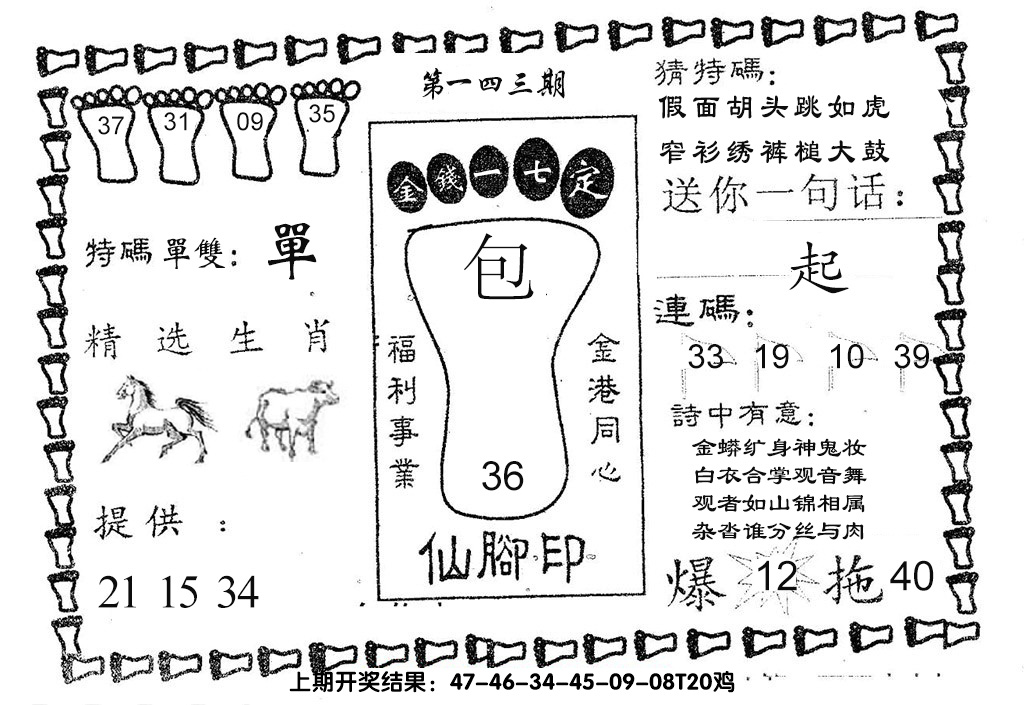 第一四三期
37 31 09 35
特碼單雙：單
精选生肖
提供：
21 15 34
金錢一七定
包
福利事業
金港同心
36
仙腳印
猜特碼：
假面胡头跳如虎
窄衫绣裤槌大鼓
送你一句话：
起
連碼：
33 19 10 39
詩中有意：
金蟒纩身神鬼妆
白衣合掌观音舞
观者如山锦相属
杂沓谁分丝与肉
爆 12 拖 40
上期开奖结果：47-46-34-45-09-08T20鸡